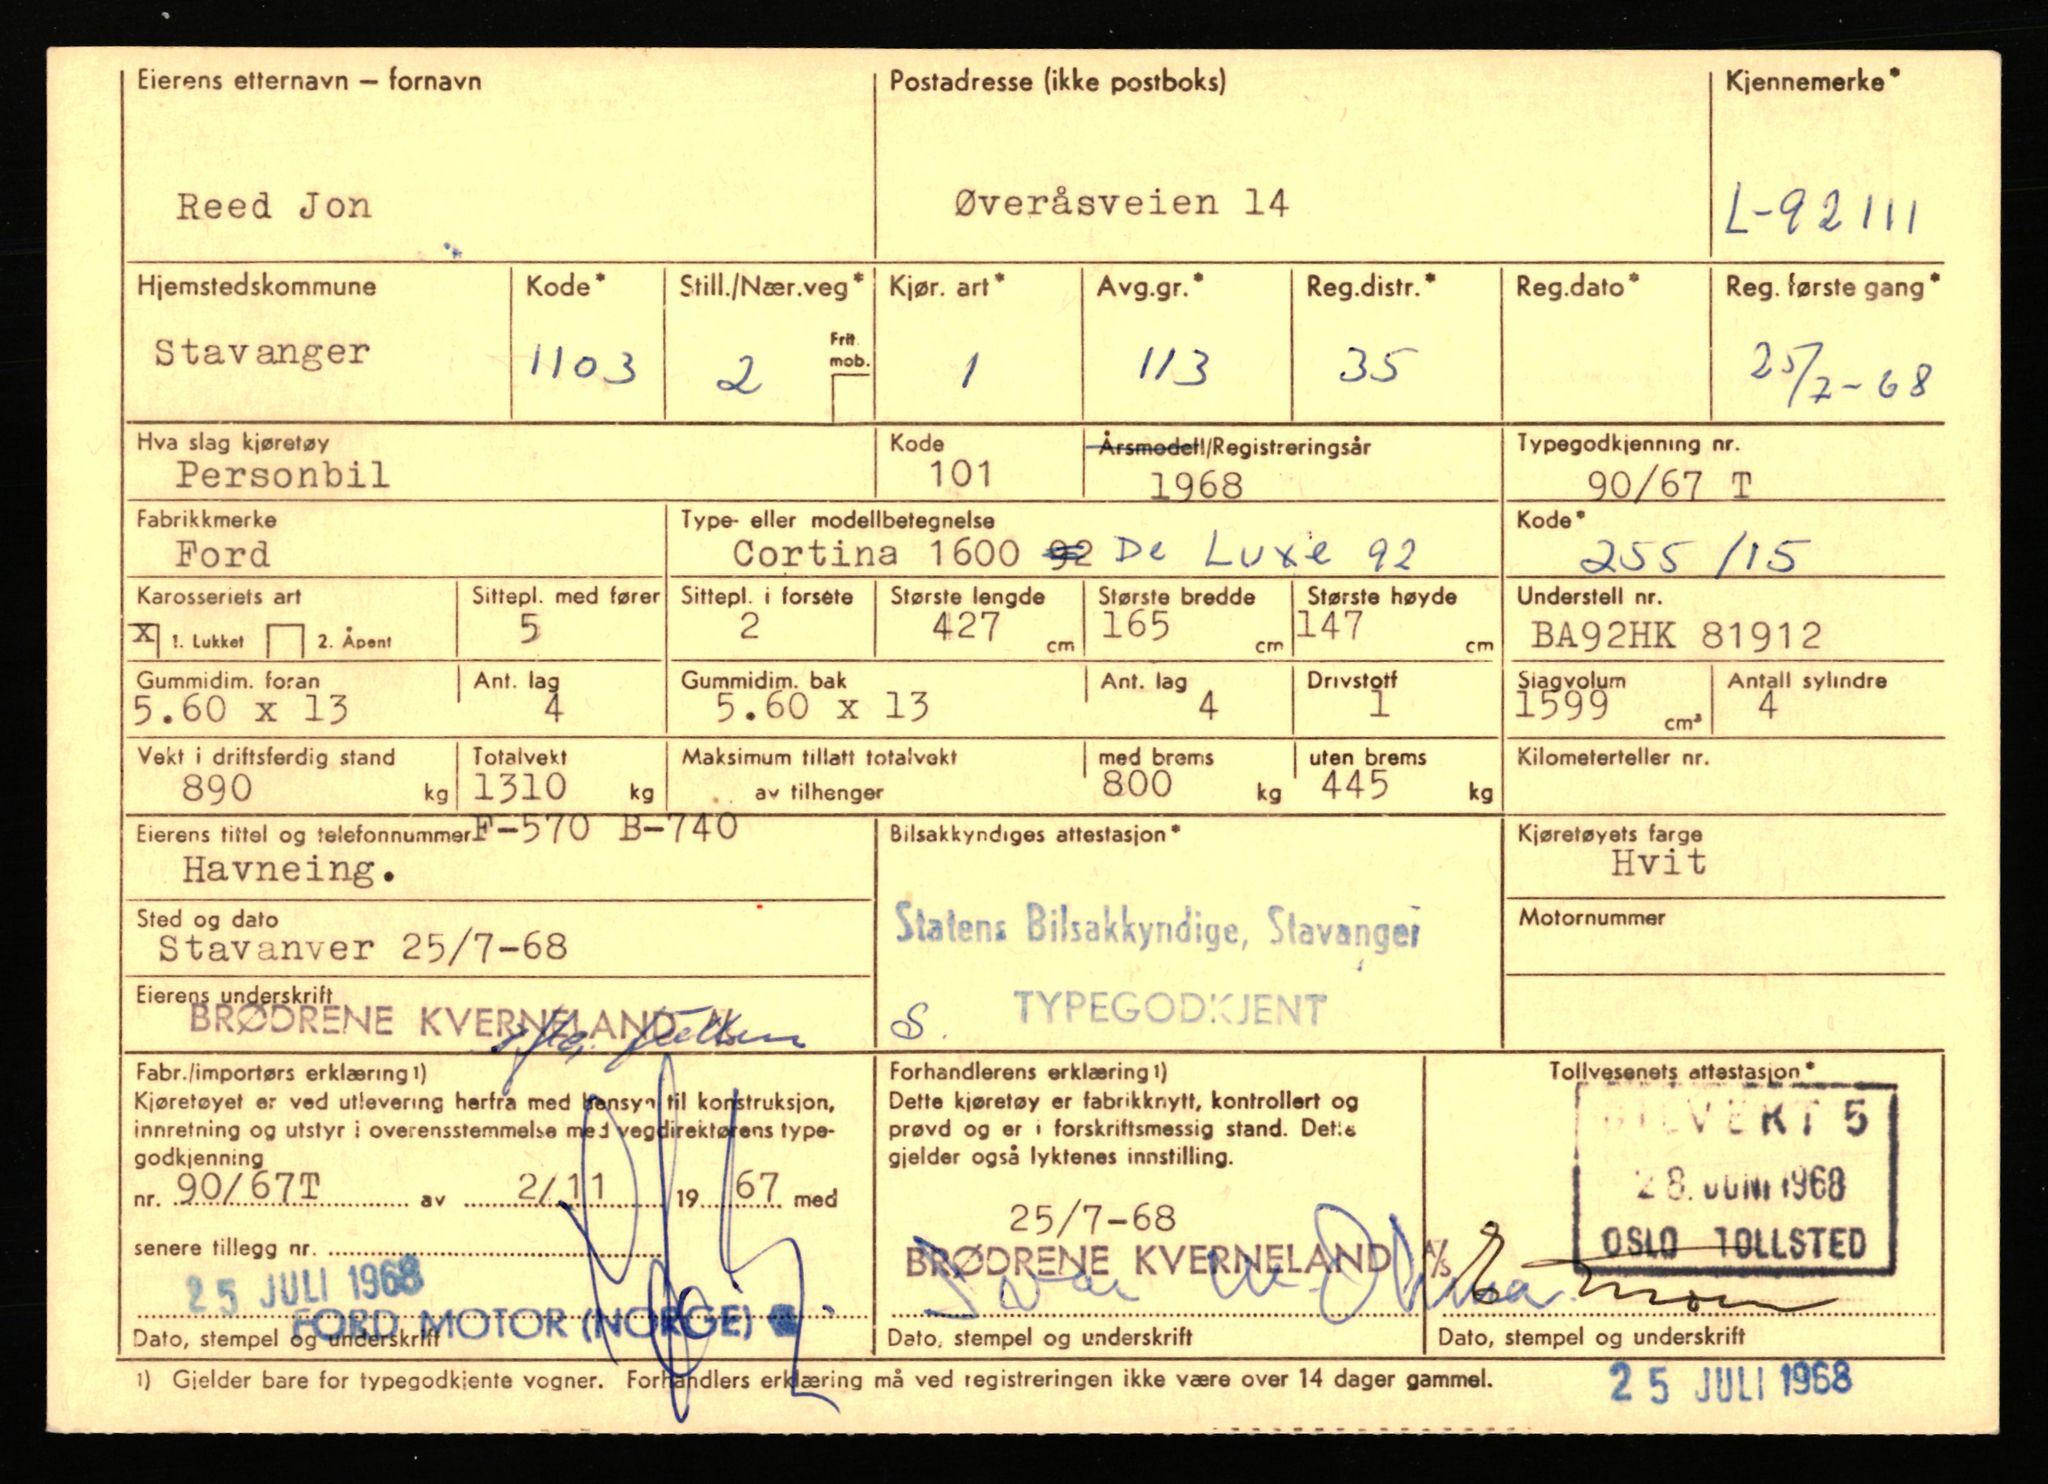 Eierens etternavn — fornavn Postadresse (ikke postboks) Kjennemerke*
Reed Jon Øveråsveien 14 L-92111
Hjemstedskommune Kode* Still./Nær.veg* Kjør. art* Avg.gr.* Reg.distr.* Reg.dato* Reg. første gang*
Frit. mob.
Stavanger 1103 2 1 113 35 25/7-68
Hva slag kjøretøy Kode Årsmodell/Registreringsår Typegodkjenning nr.
Personbil 101 1968 90/67 T
Fabrikkmerke Type- eller modellbetegnelse Kode*
Ford Cortina 1600 92 De Luxe 92 255/15
Karosseriets art Sittepl. med fører Sittepl. i forsete Største lengde Største bredde Største høyde Understell nr.
x 1. Lukket 2. Åpent 5 2 427 cm 165 cm 147 cm BA92HK 81912
Gummidim. foran Ant. lag Gummidim. bak Ant. lag Drivstoff Slagvolum Antall sylindre
5.60 x 13 4 5.60 x 13 4 1 1599 cm³ 4
Vekt i driftsferdig stand Totalvekt Maksimum tillatt totalvekt med brems uten brems Kilometerteller nr.
890 kg 1310 kg av tilhenger 800 kg 445 kg
Eierens tittel og telefonnummer F-570 B-740 Bilsakkyndiges attestasjon* Kjøretøyets farge
Havneing. Hvit
Sted og dato Statens Bilsakkyndige, Stavanger Motornummer
Stavanver 25/7-68
Eierens underskrift TYPEGODKJENT
BRØDRENE KVERNELAND A/S S.
Fabr./importørs erklæring 1) Forhandlerens erklæring 1) Tollvesenets attestasjon*
Kjøretøyet er ved utlevering herfra med hensyn til konstruksjon, Dette kjøretøy er fabrikknytt, kontrollert og BILVERKT 5
innretning og utstyr i overensstemmelse med vegdirektørens type- prøvd og er i forskriftsmessig stand. Dette
godkjenning gjelder også lyktenes innstilling.
nr. 90/67T av 2/11 1967 med 28. JUNI 1968
25/7-68
senere tillegg nr. BRØDRENE KVERNELAND A/S OSLO TOLLSTED
25 JULI 1968
FORD MOTOR (NORGE)
Dato, stempel og underskrift Dato, stempel og underskrift Dato, stempel og underskrift
1) Gjelder bare for typegodkjente vogner. Forhandlers erklæring må ved registreringen ikke være over 14 dager gammel. 25 JULI 1968